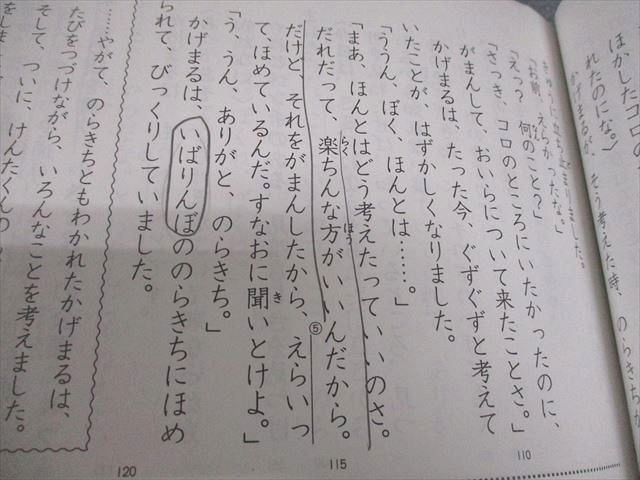 ほかしたコロの
れたのになる〉
かげまるが、そう考えた時、のらきちが
きゅうに立ち止まりました。
「お前、えらかったな。」
「えっ？　何のこと？」
「さっき、コロのところにいたかったのに、
がまんして、おいらについて来たことさ。」
かげまるは、たった今、ぐずぐずと考えて
いたことが、はずかしくなりました。
「ううん、ぼく、ほんとは……。」
「まあ、ほんとはどう考えたっていいのさ。
だれだって、楽ちんな方がいいんだから。
らく
ほう
だけど、それをがまんしたから、えらいっ
⑤
て、ほめているんだ。すなおに聞いとけよ。」
き
「う、うん、ありがと、のらきち。」
かげまるは、いばりんぼののらきちにほめ
られて、びっくりしていました。
……やがて、のらきちともわかれたかげまるは、
たびをつづけながら、いろんなことを考えました。
そして、ついに、けんたくんの
をしま
110
115
120